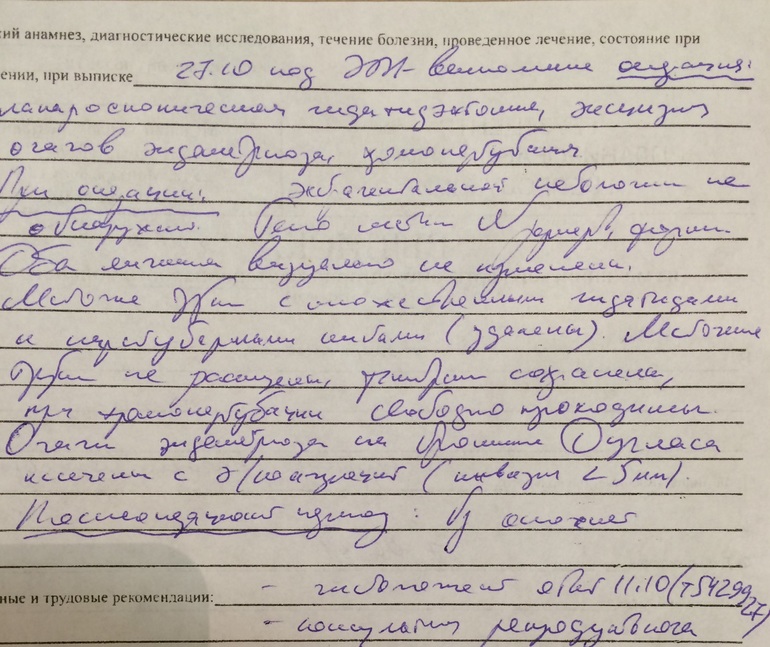 ий анамнез, диагностические исследования, течение болезни, проведенное лечение, состояние при
ении, при выписке 27.10 под ЭТН выполнена операция:
лапароскопическая гидатидэктомия, эксцизия
очагов эндометриоза, хромопертубация
При операции: экстрагенитальной патологии не
обнаружено. Тело матки N размеров, формы.
Оба яичника визуально не изменены.
Маточные трубы с множественными гидатидами
и паратубарными кистами (удалены). Маточные
трубы не расширены, фимбрии сохранены,
при хромопертубации свободно проходимы.
Очаги эндометриоза на брюшине Дугласа
иссечены с э/коагуляцией (инвазия < 5 мм).
Послеоперационный период: б/ осложнений
ные и трудовые рекомендации: - 11.10 (
- консультация репродуктолога